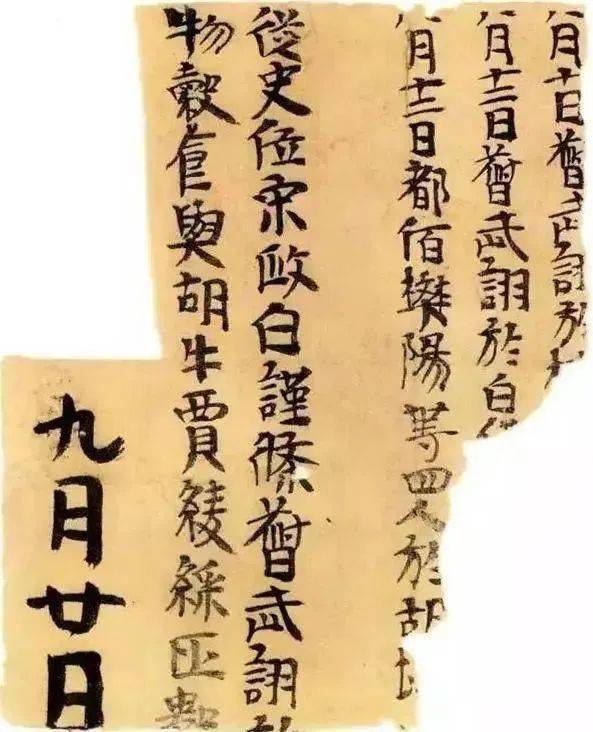 月十日武詡於
月十二日武詡於自
月十二日都佰樊陽等四人於胡
從史位宋政白謹條武詡於
物穀與胡牛賈綾綵匹數
九月廿日